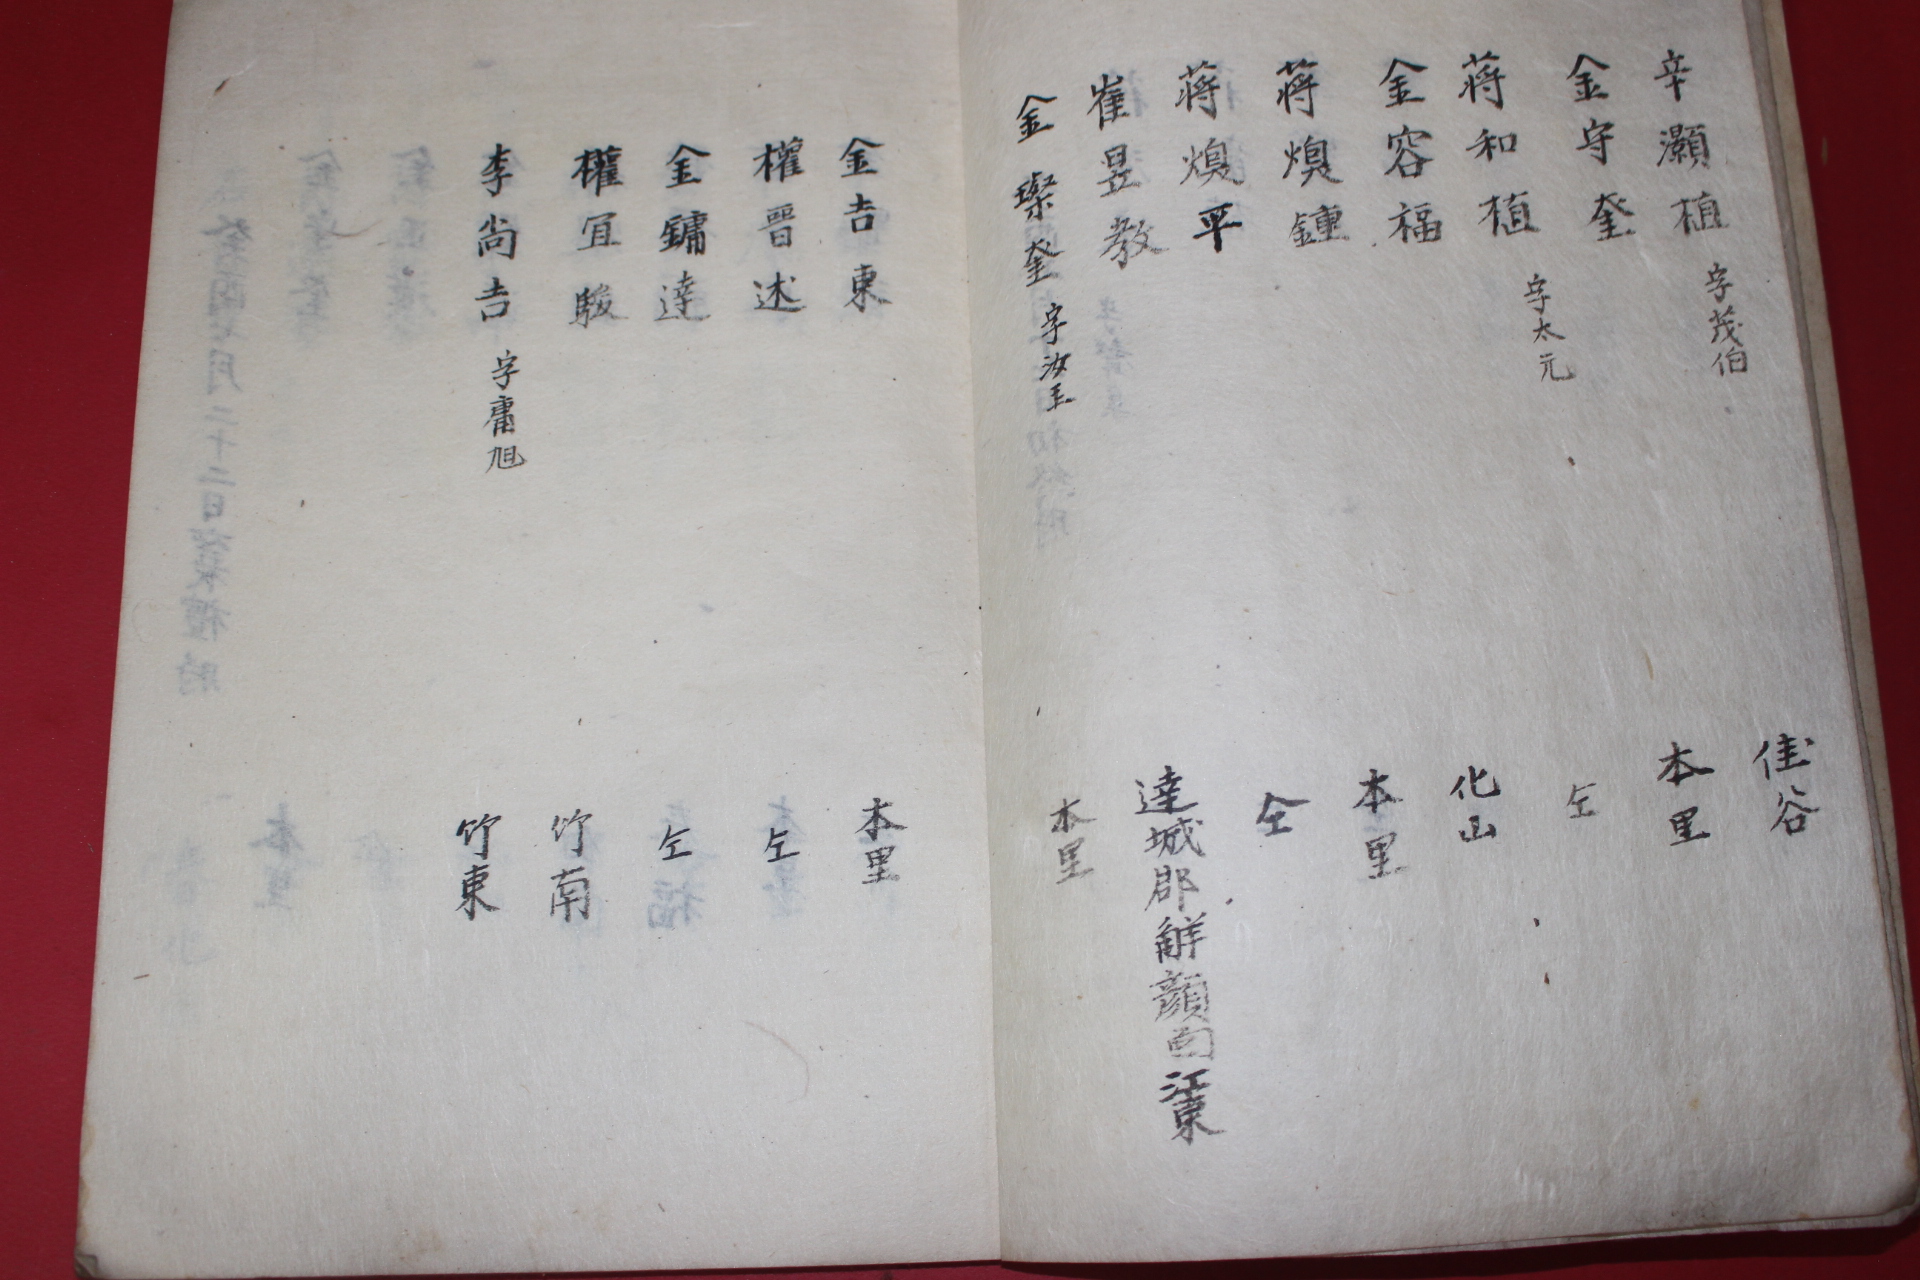 辛灝植 字茂伯 佳谷
金守奎 本里
蔣和植 字太元 仝
金容福 化山
蔣煥鍾 本里
蔣煥平 仝
崔昱教 達城郡解顏面江東
金璨奎 字汝玉 本里
金吉東 本里
權晋述 仝
金鏞達 仝
權宜駿 竹南
李尚吉 字庸旭 竹東